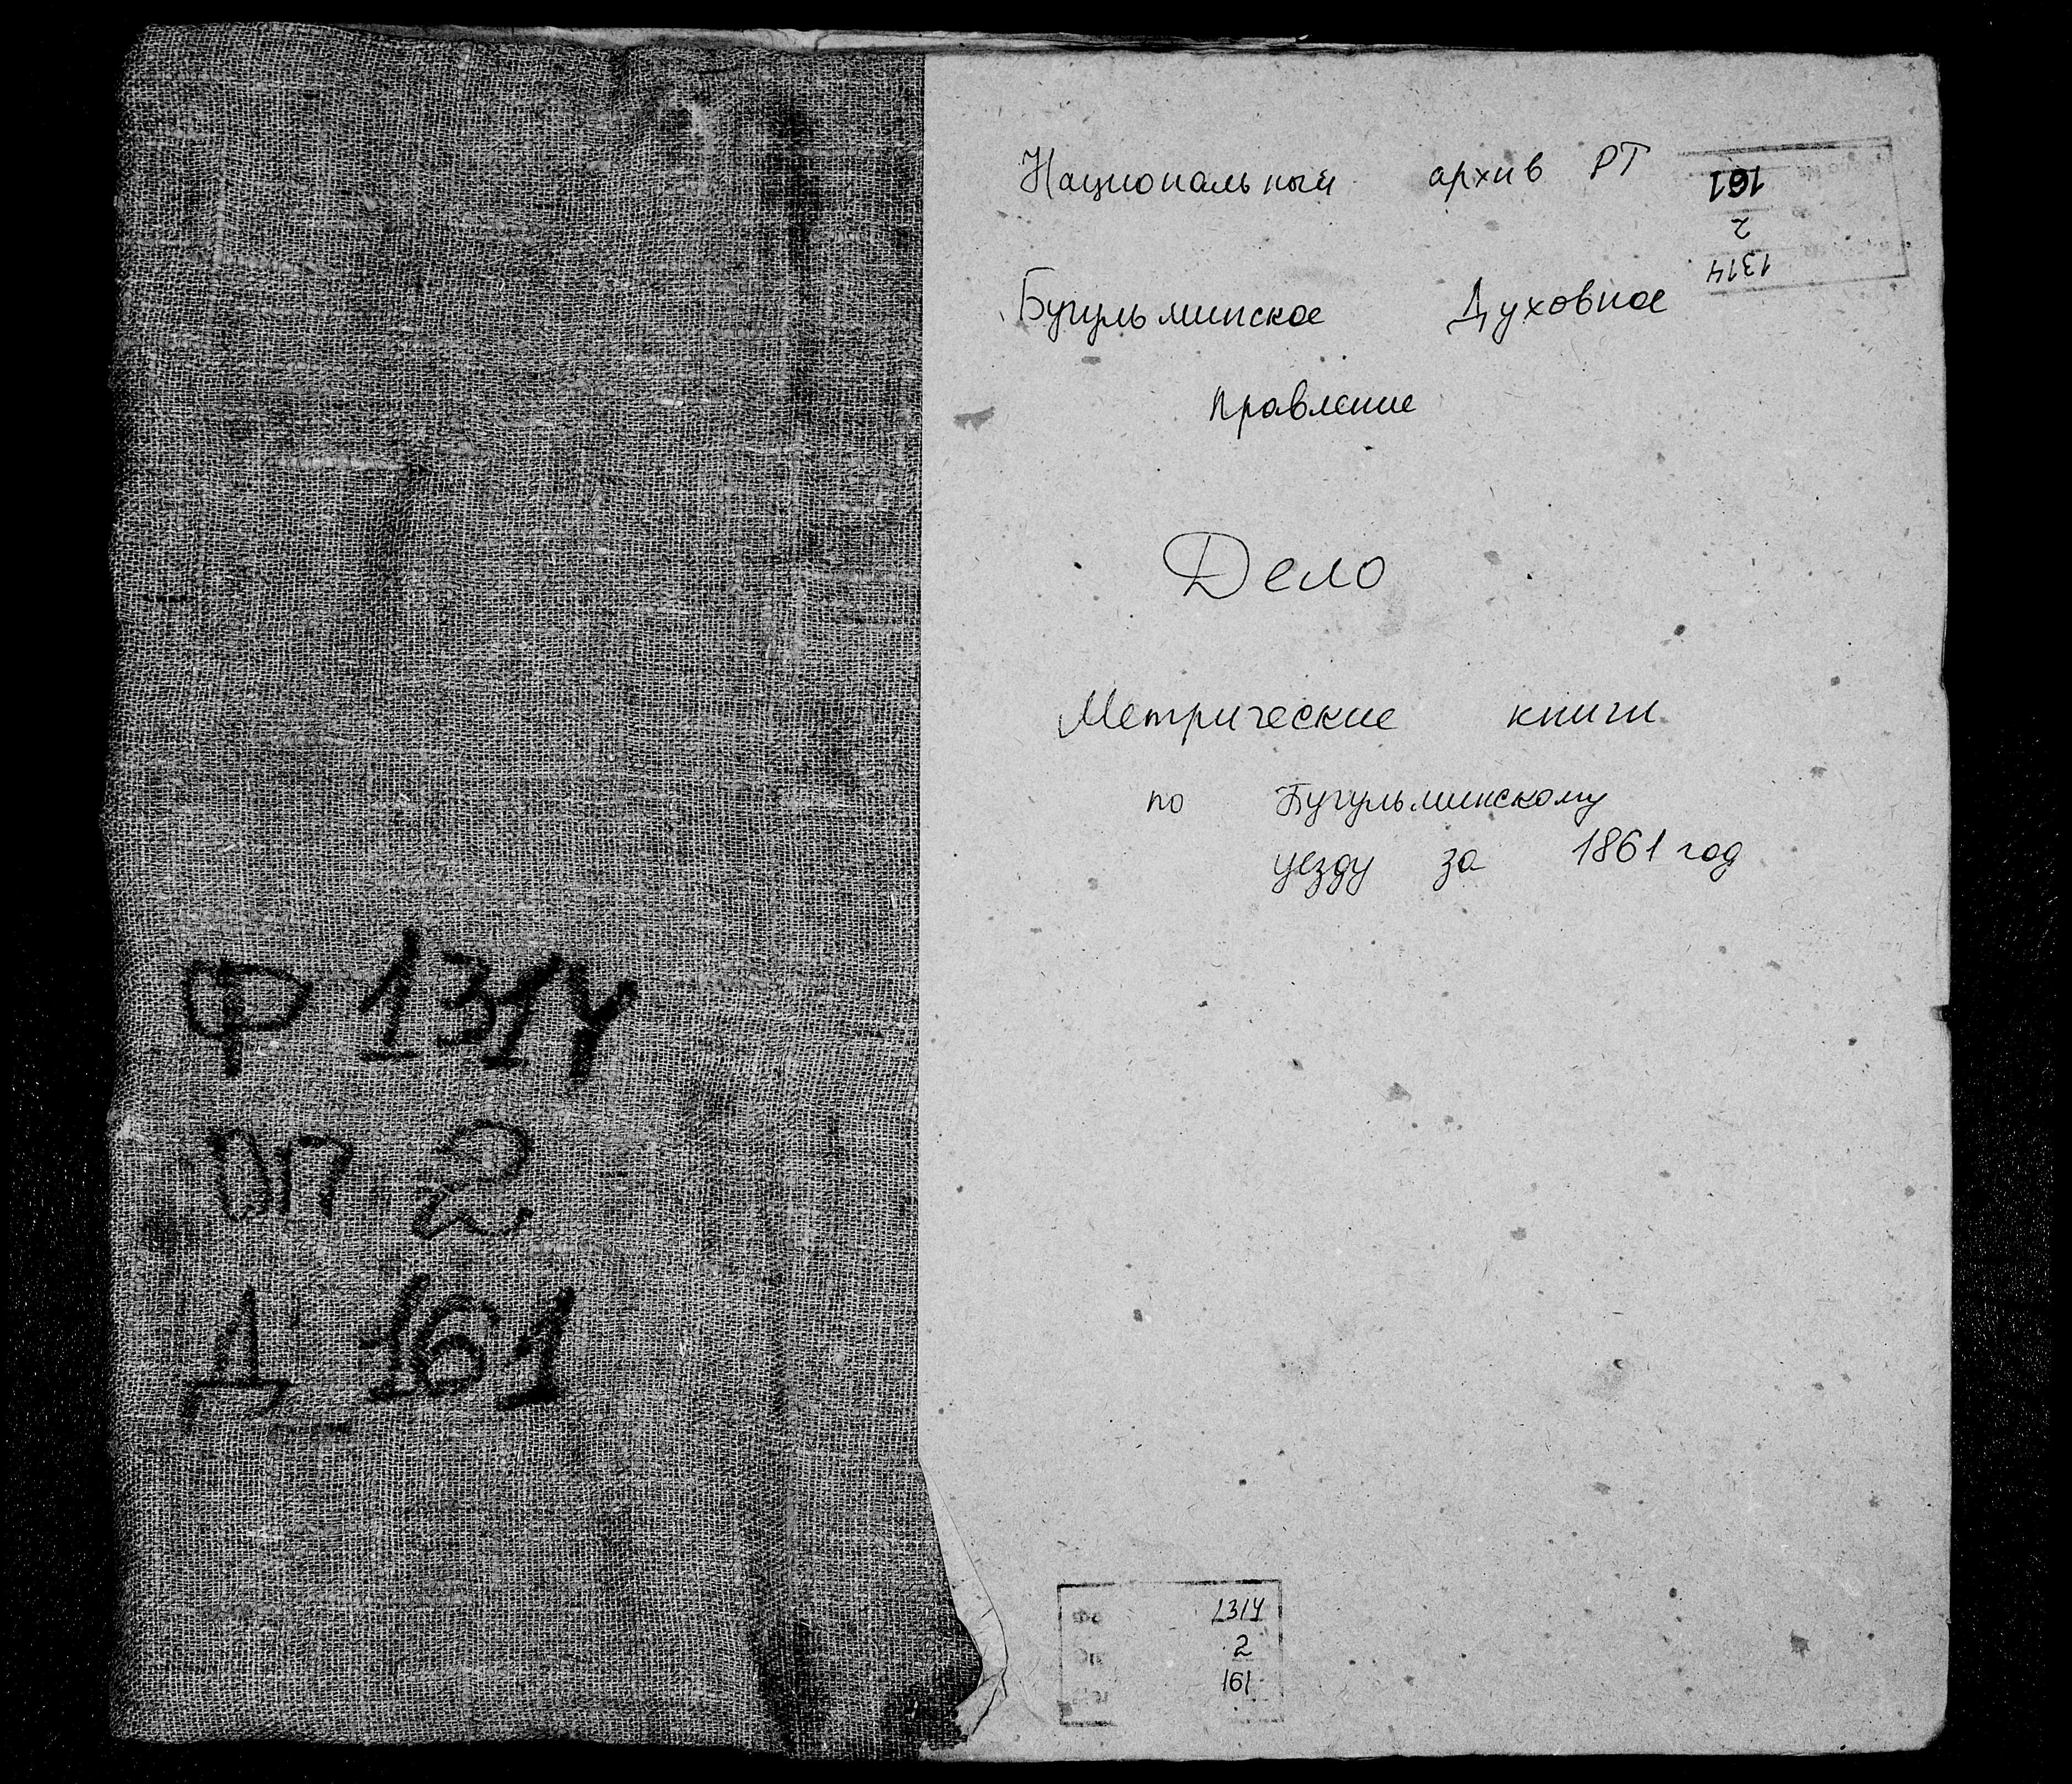 Ф 1314
ОП 2
Д 161
Национальный архив РТ
161
2
1314
Бугульминское Духовное
правление
Дело
Метрические книги
по Бугульминскому
уезду за 1861 год
1314
2
161